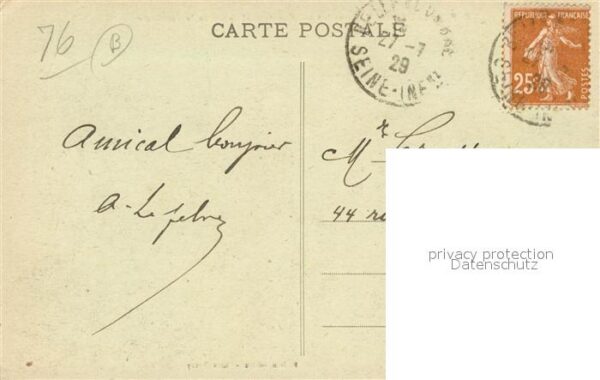 76 B
CARTE POSTALE
27-7
29
SEINE-INF
REPUBLIQUE FRANÇAISE
25
POSTES
Amical bonjour
A. Lefebvre
Mr
44
privacy protection
Datenschutz